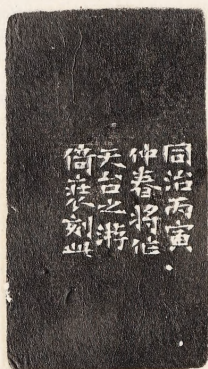 同治丙寅
仲春将作
天台之游
倚莊刻此